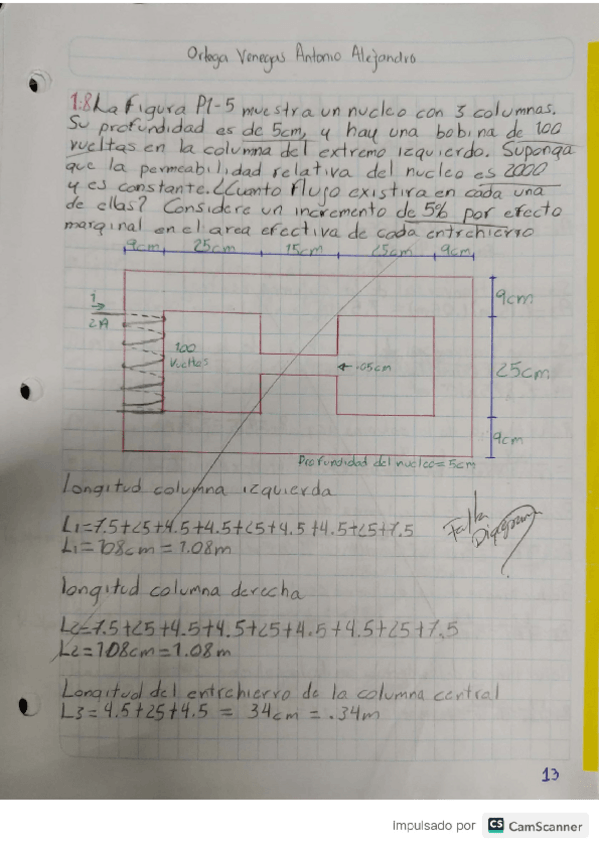 Ortega Venegas Antonio Alejandro
1:8 La Figura P1-5 muestra un nucleo con 3 columnas.
Su profundidad es de 5cm, y hay una bobina de 100
vueltas en la columna del extremo izquierdo. Suponga
que la permeabilidad relativa del nucleo es 2000
y es constante. ¿Cuanto flujo existira en cada una
de ellas? Considere un incremento de 5% por efecto
marginal en el area efectiva de cada entrehierro
9cm 25cm 15cm 25cm 9cm
i
2A
100
Vueltas
.05cm
9cm
25cm
9cm
Profundidad del nucleo = 5cm
longitud columna izquierda
L1=7.5+25+4.5+4.5+25+4.5+4.5+25+7.5
L1=108cm=1.08m
Falta
Diagrama
longitud columna derecha
L2=7.5+25+4.5+4.5+25+4.5+4.5+25+7.5
L2=108cm=1.08m
Longitud del entrehierro de la columna central
L3=4.5+25+4.5 = 34cm = .34m
13
Impulsado por CS CamScanner